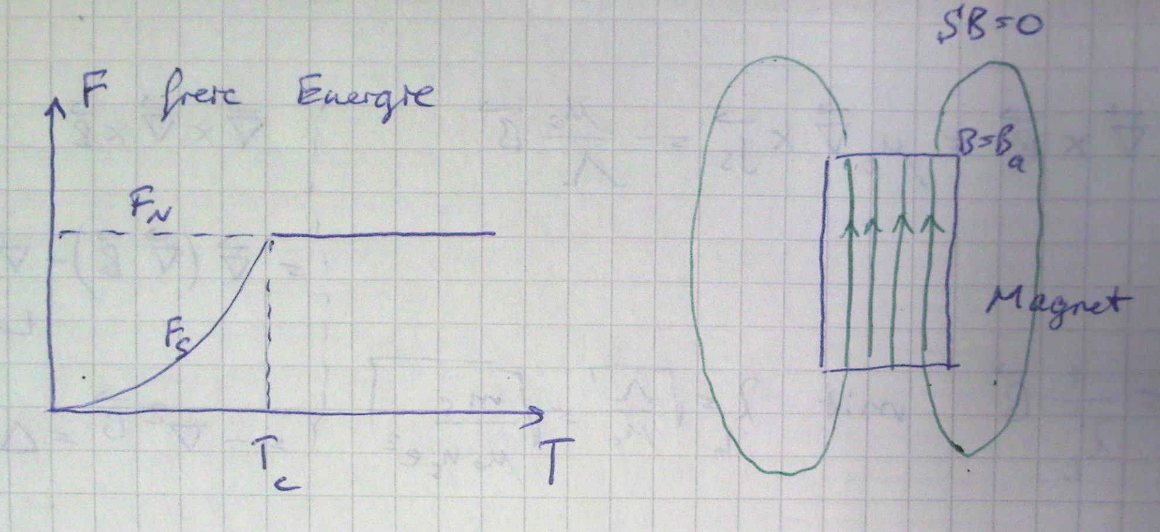 F freie Energie
F_N
F_S
T_c
T
SB=0
B=B_a
Magnet